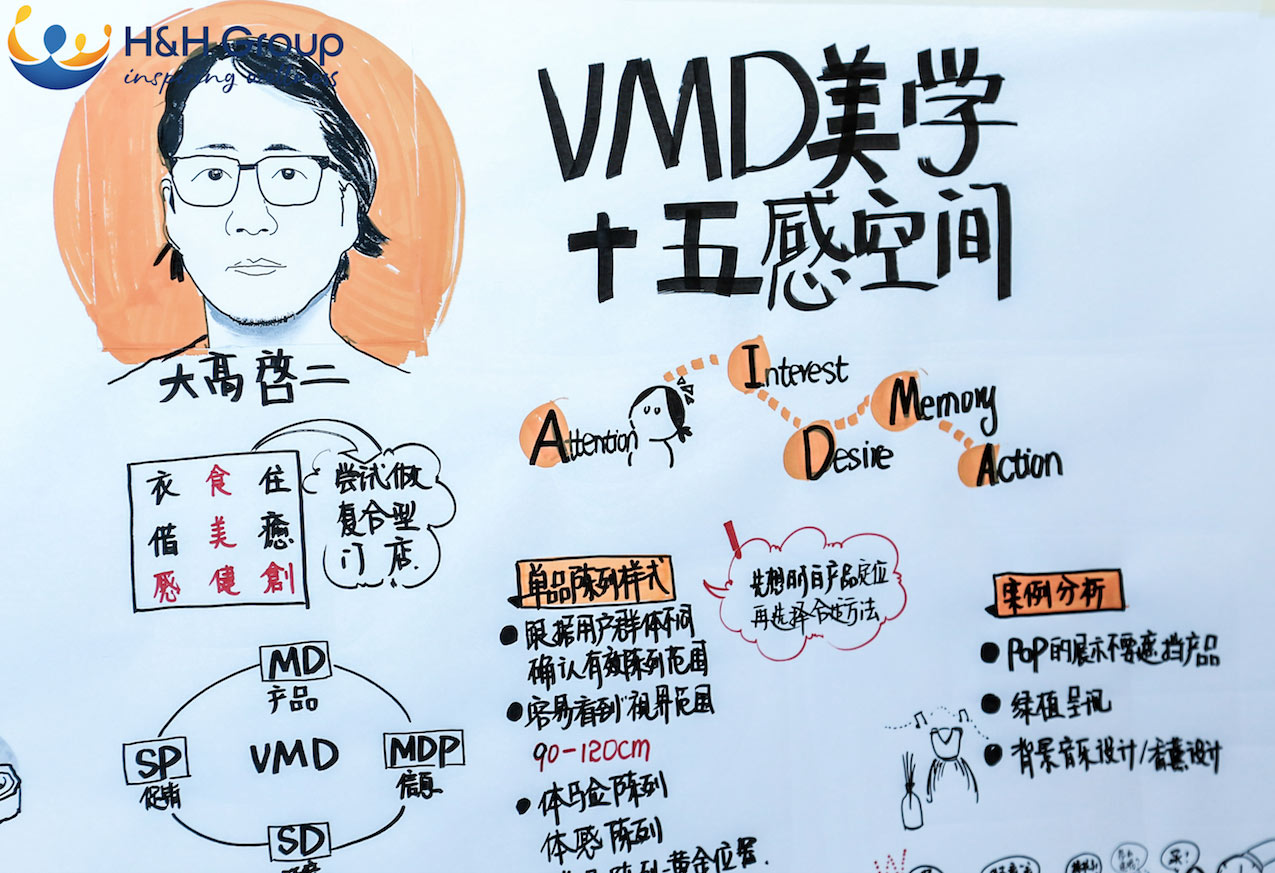 H&H Group
inspiring wellness
VMD美学
十五感空间
大高啓二
Attention
Interest
Desire
Memory
Action
衣 食 住
借 美 癒
感 健 創
尝试做
复合型
门店.
MD
产品
SP
促销
VMD
MDP
信息
SD
单品陈列样式
跟据用户群体不同
确认有效陈列范围
容易看到"视界范围
90-120cm
陈列
体感陈列
陈列-黄金位置.
先想明白产品定位
再选择合适方法
案例分析
POP的展示不要遮挡产品
绿植呈现
背景音乐设计/香薰设计